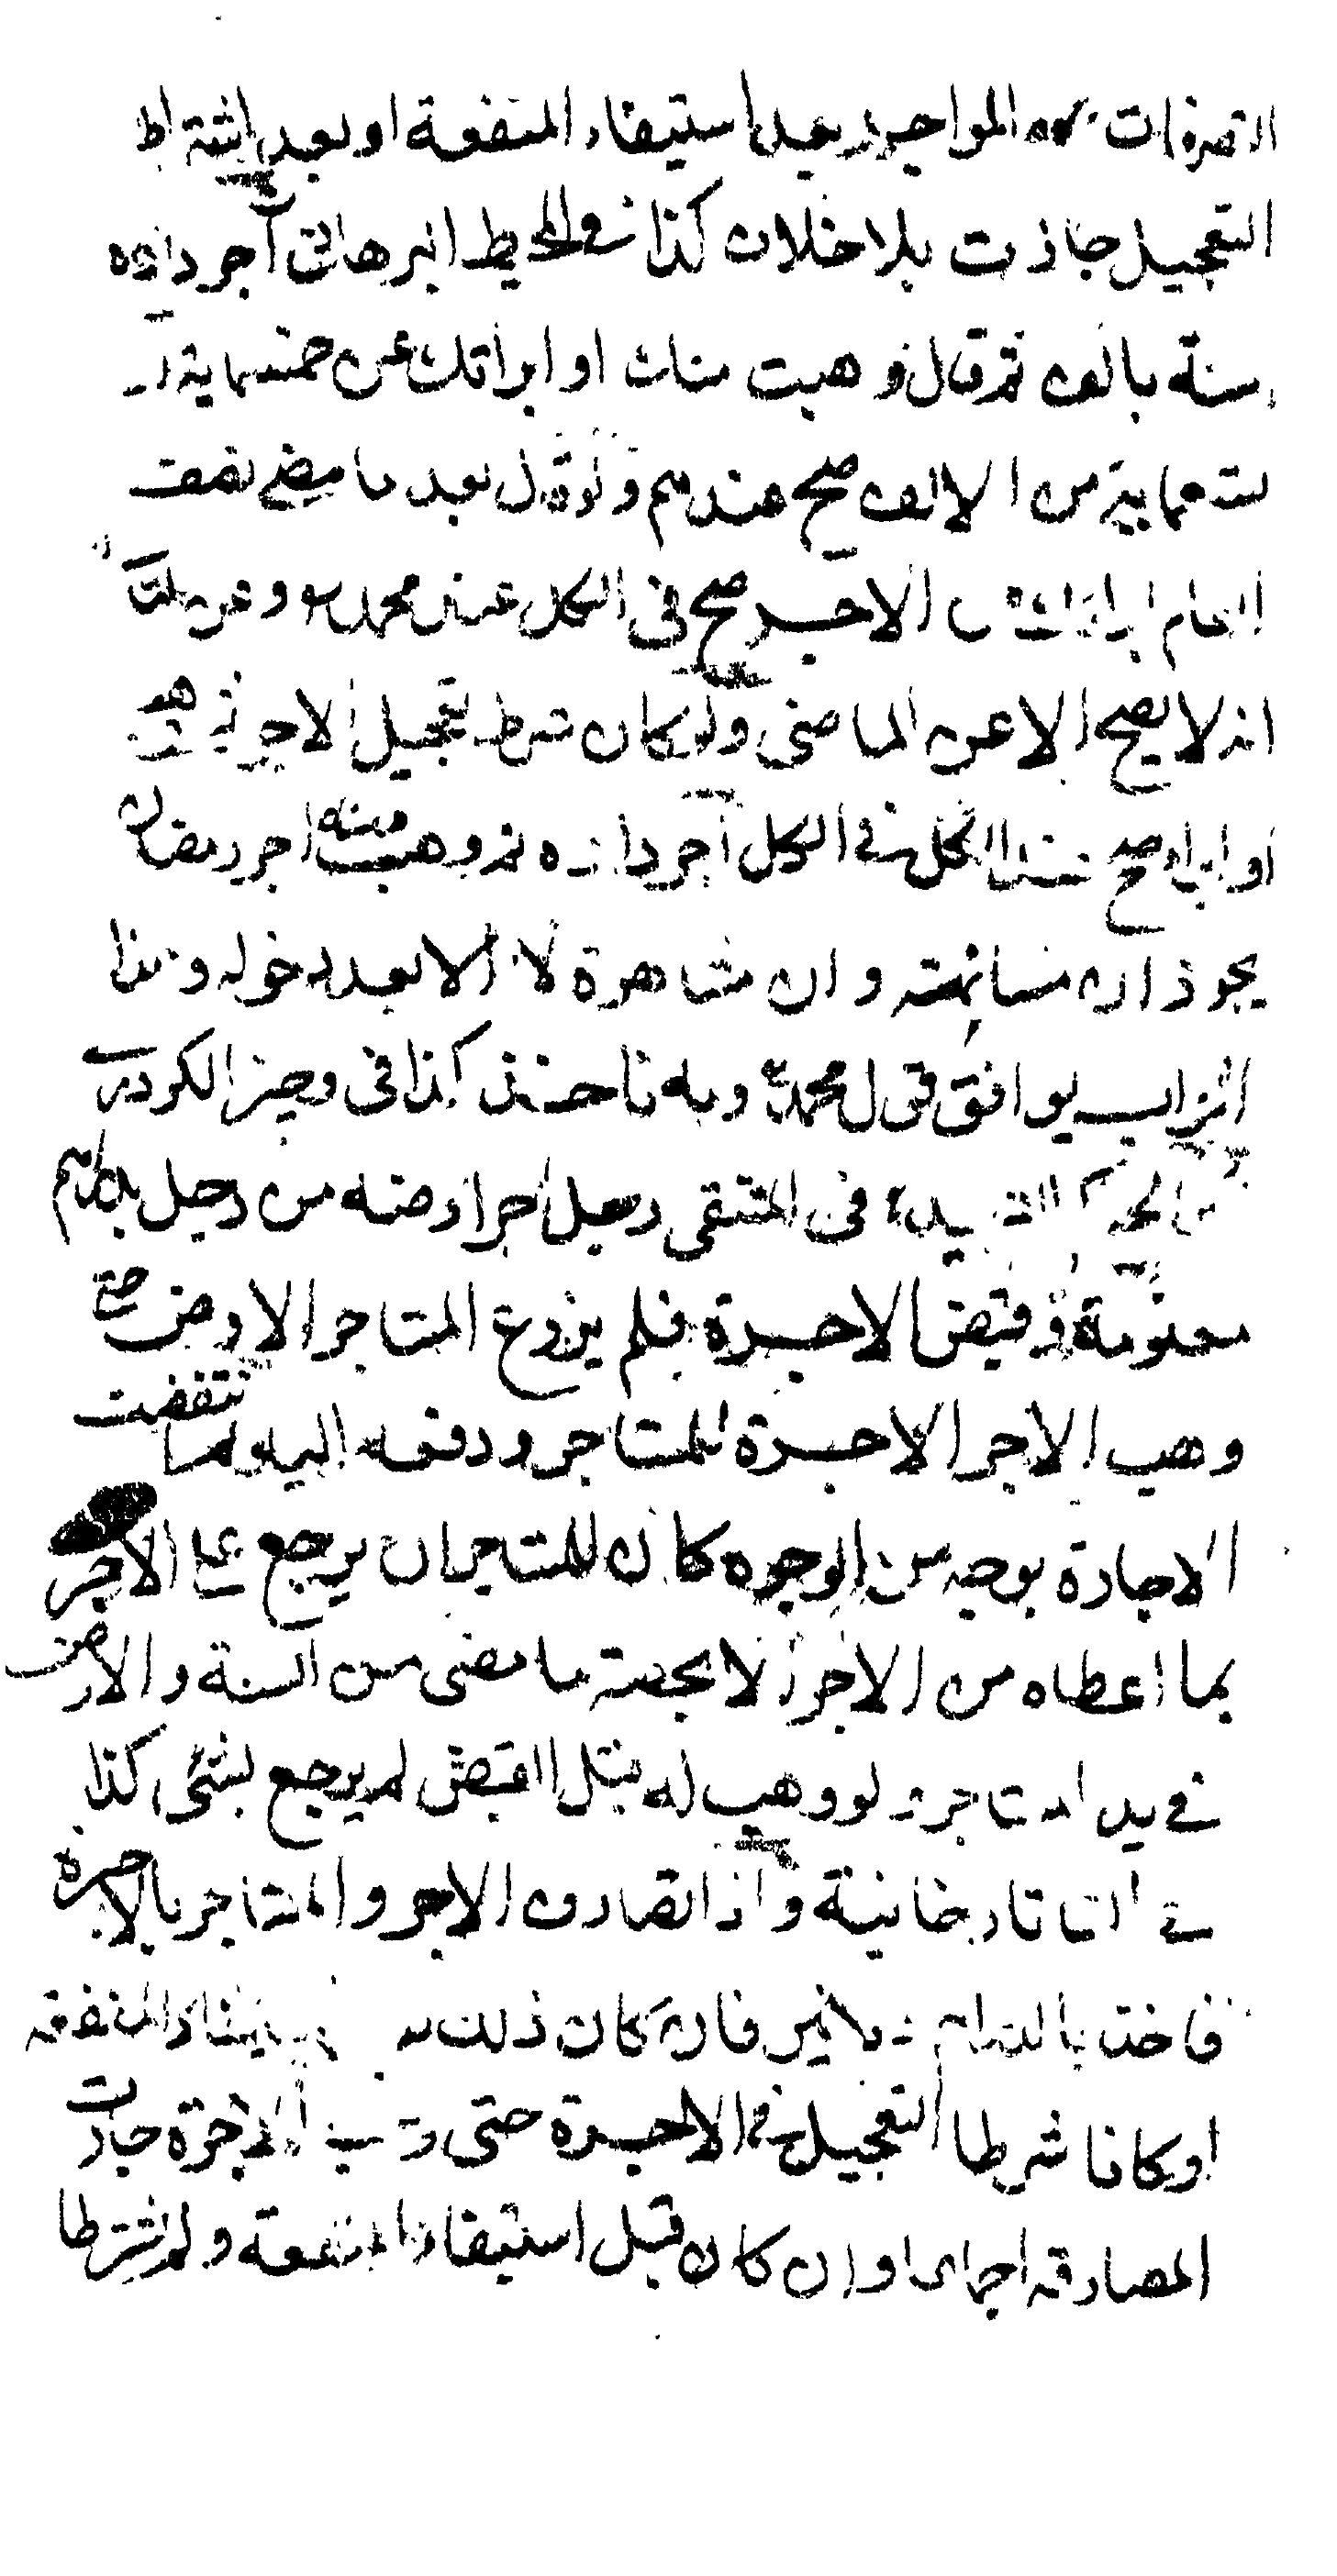 التصرفات من المواجر بعد استيفاء المنفعة او بعد اشتراط
التعجيل جازت بلا خلاف كذا في المحيط البرهاني آجر داره
سنة بالف ثم قال وهبت منك او ابراتك عن خمسماية او
تسعماية من الالف صح عندهم ولو قال بعد ما مضي نصف
العام ابراتك الاجر صح في الكل عند محمد وعن
انه لا يصح الا عن الماضي ولو كان شرط تعجيل الاجرة
او ابراه صح عند الكل في الكل آجر داره ثم وهب منه اجر رمضان
يجوز ان مسانهة وان مشاهرة لا الا بعد دخوله وهذا
الجواب يوافق قول محمد وبه ناخذ كذا في وجيز الكردري
في المنتقى رجل اجر ارضه من رجل بدراهم
معلومة وقبض الاجرة فلم يزرع المستاجر الارض حتى
وهب الاجر الاجرة للمستاجر ودفعه اليه ولما انتقضت
الاجارة بوجه من الوجوه كان للمستاجر ان يرجع على الاجر
بما اعطاه من الاجر الا بحصة ما مضى من السنة والارض
في يد المستاجر ولو وهب له قبل القبض لم يرجع بشئ كذا
في التاتارخانية واذا تصارف الاجر والمستاجر بالاجرة
فاخذ بالدراهم دنانير فان كان ذلك بعد استيفاء المنفعة
او كانا شرطا التعجيل في الاجرة حتى وجبت الاجرة جازت
المصارفة اجماعا وان كان قبل استيفاء المنفعة ولم يشترطا